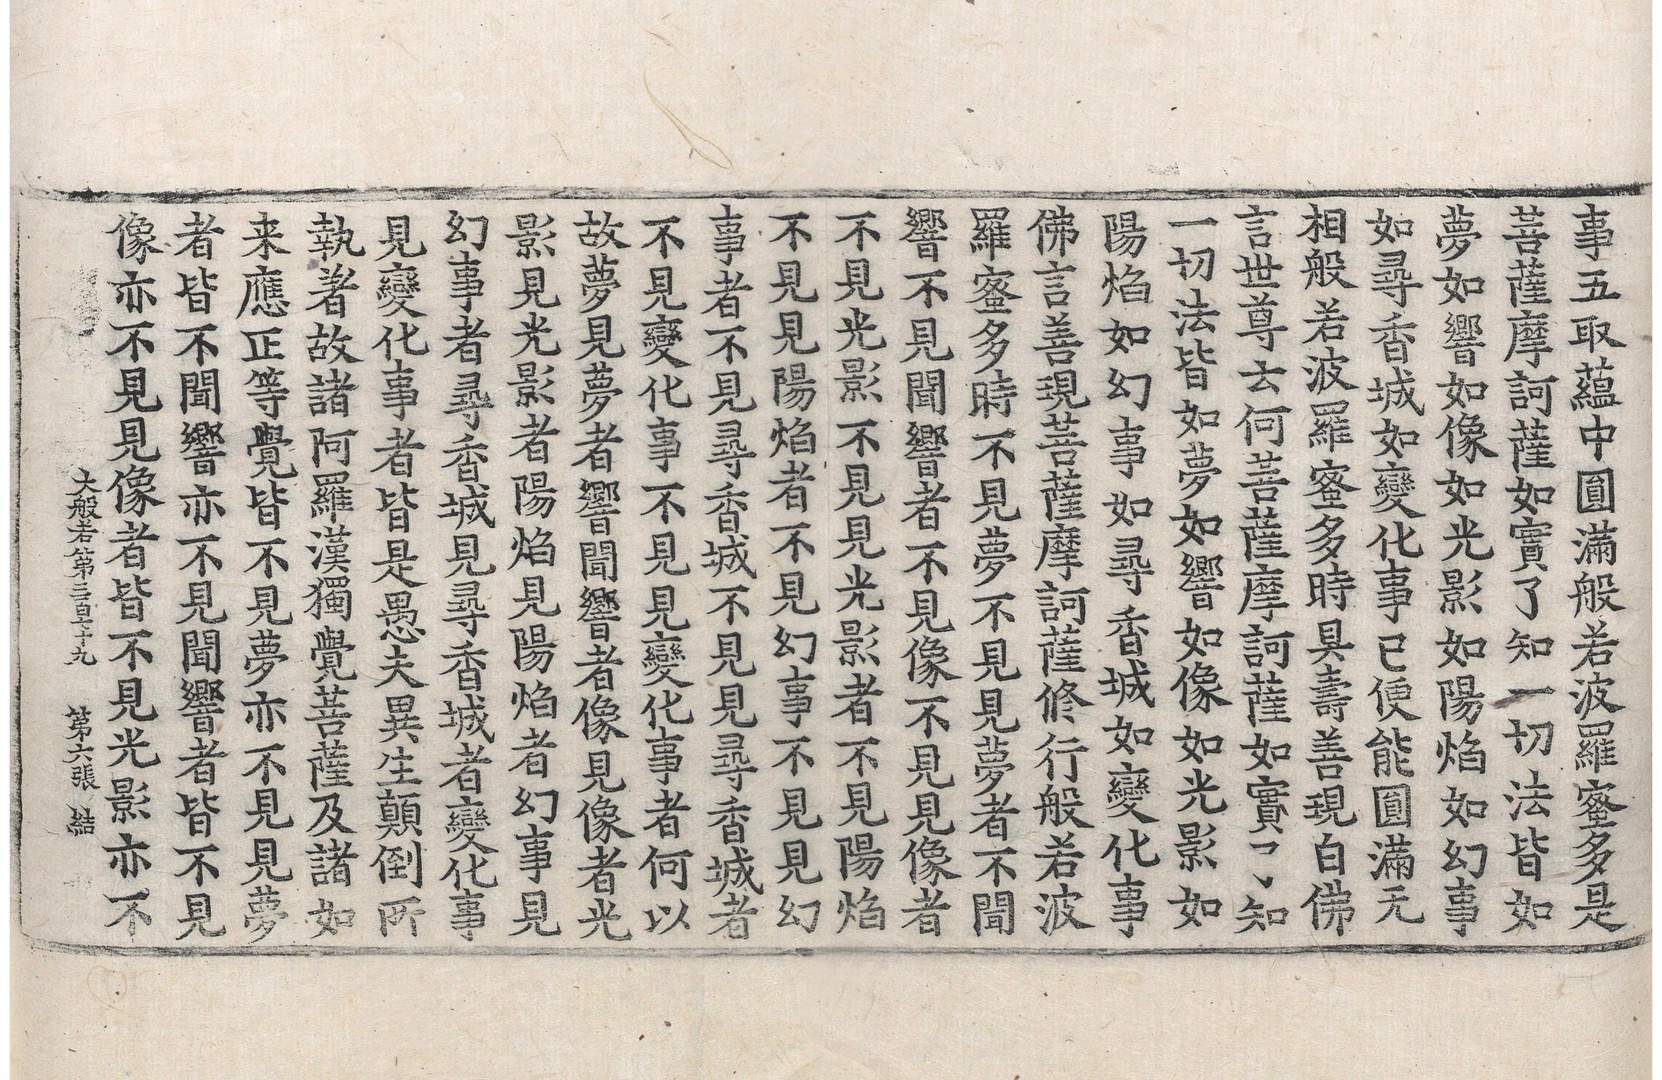 事五取蘊中圎滿般若波羅蜜多是
菩薩摩訶薩如實了知一切法皆如
夢如響如像如光影如陽焰如幻事
如尋香城如變化事已便能圎滿无
相般若波羅蜜多時具壽善現白佛
言世尊云何菩薩摩訶薩如實了知
一切法皆如夢如響如像如光影如
陽焰如幻事如尋香城如變化事
佛言善現菩薩摩訶薩修行般若波
羅蜜多時不見夢不見見夢者不聞
響不見聞響者不見像不見見像者
不見光影不見見光影者不見陽焰
不見見陽焰者不見幻事不見見幻
事者不見尋香城不見見尋香城者
不見變化事不見見變化事者何以
故夢見夢者響聞響者像見像者光
影見光影者陽焰見陽焰者幻事見
幻事者尋香城見尋香城者變化事
見變化事者皆是愚夫異生顛倒所
執著故諸阿羅漢獨覺菩薩及諸如
来應正等覺皆不見夢亦不見見夢
者皆不聞響亦不見聞響者皆不見
像亦不見見像者皆不見光影亦不
大般若第三百七十九 第六張 結